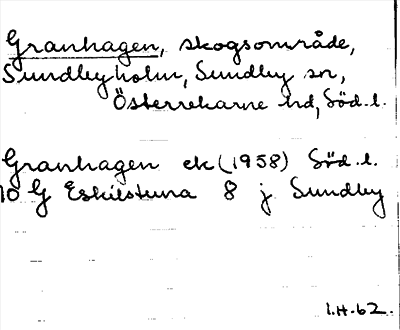 Granhagen, skogsområde,
Sundbyholm, Sundby sn,
Österrekarne hd, Söd. l.
Granhagen ek (1958) Söd. l.
10 G Eskilstuna 8 j Sundby
I.H. 62.